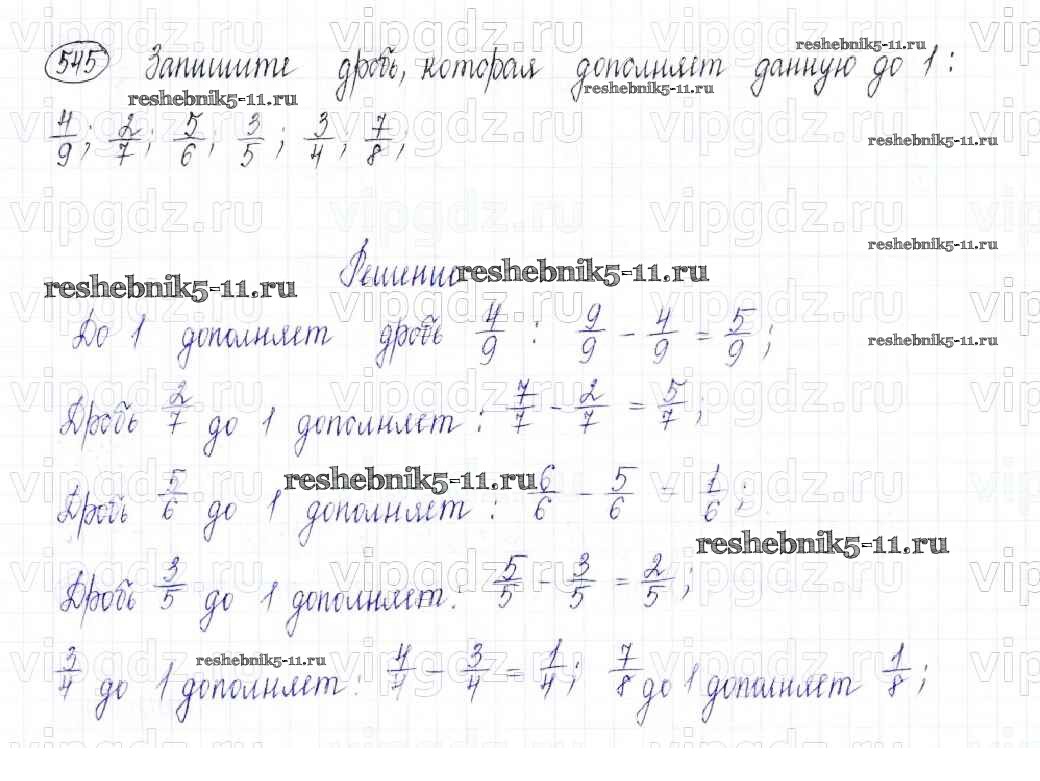 545 Запишите дробь, которая дополняет данную до 1:
4/9; 2/7; 5/6; 3/5; 3/4; 7/8;
Решение
До 1 дополняет дробь 4/9 : 9/9 - 4/9 = 5/9;
Дробь 2/7 до 1 дополняет: 7/7 - 2/7 = 5/7;
Дробь 5/6 до 1 дополняет: 6/6 - 5/6 = 1/6;
Дробь 3/5 до 1 дополняет: 5/5 - 3/5 = 2/5;
3/4 до 1 дополняет: 4/4 - 3/4 = 1/4; 7/8 до 1 дополняет 1/8;
reshebnik5-11.ru
vipgdz.ru